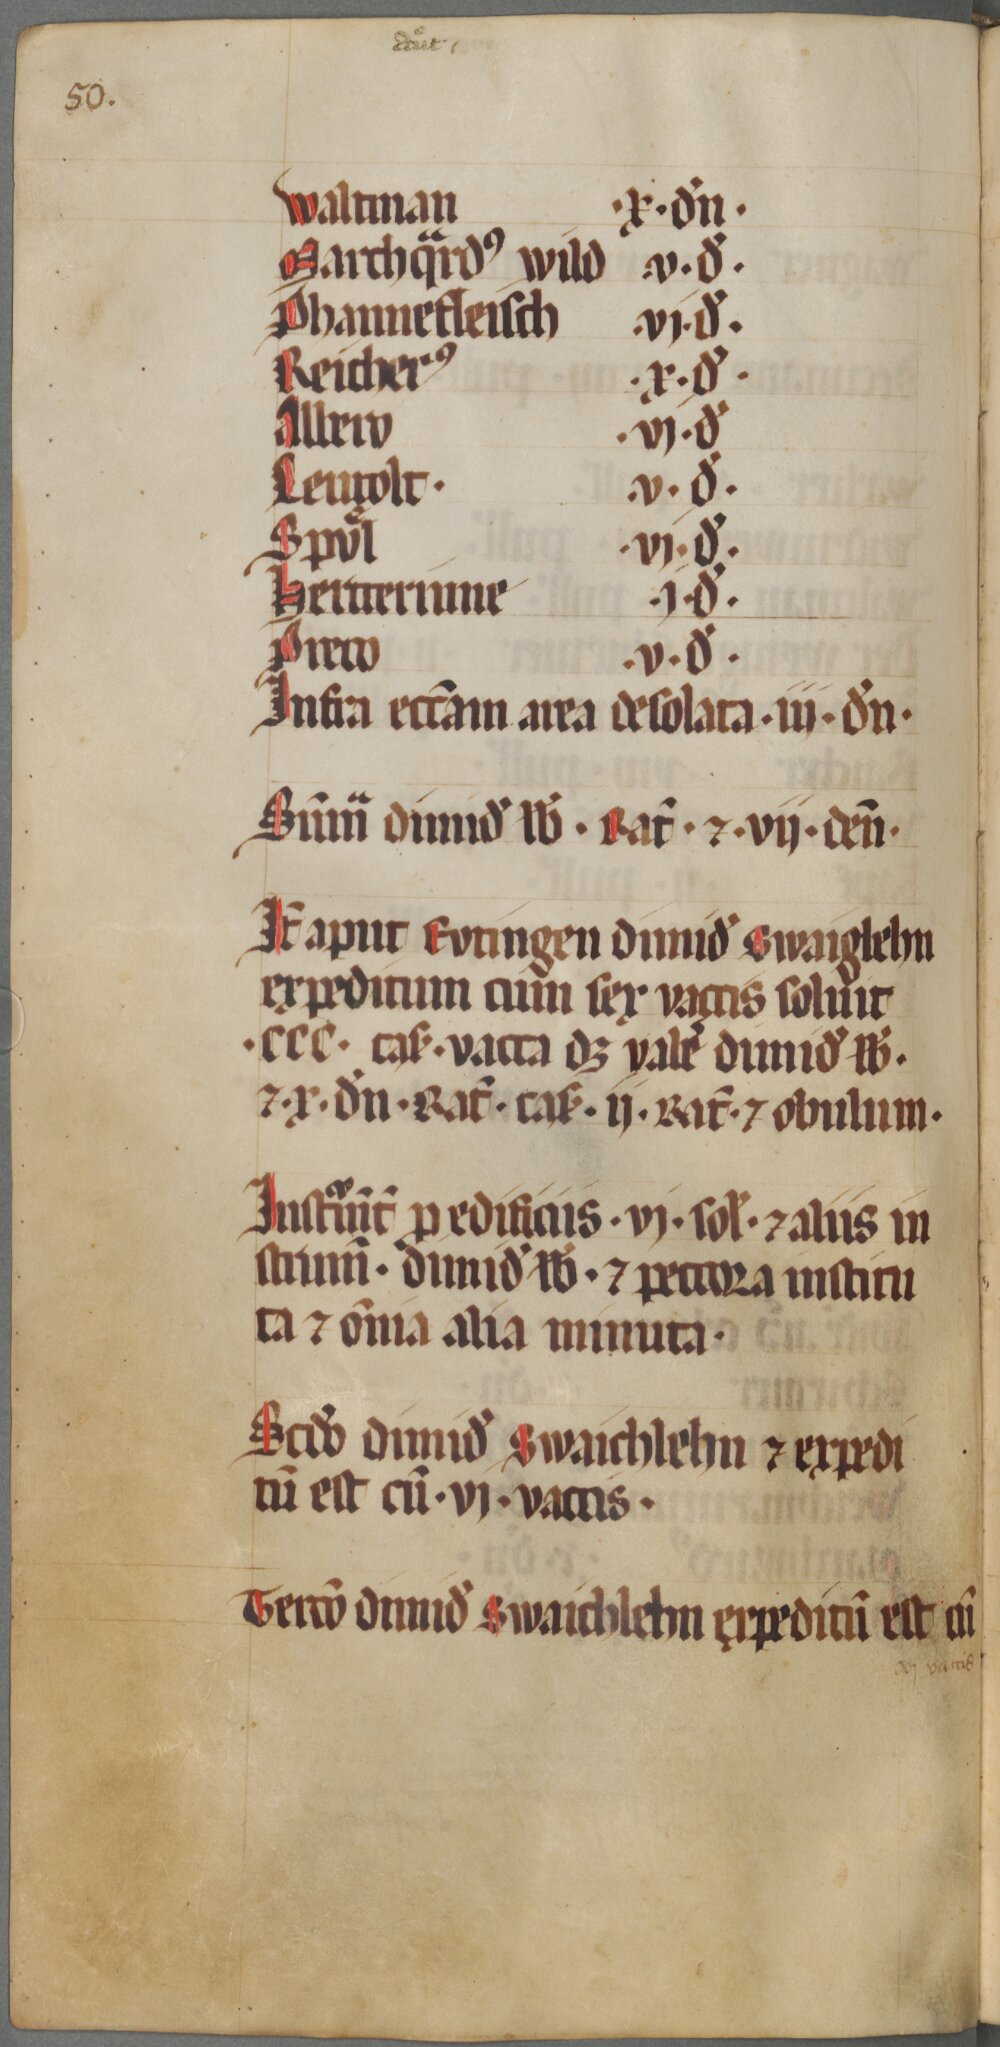 50.
Waltman ·x· dn̄·
Marchqᵃrdꝰ wild ·v·đ·
Phannefleisch ·vj·đ·
Reicherꝰ ·x·đ·
Allerv ·vj·đ
Leutolt· ·v·đ·
Spvͤl ·vj·đ·
Heitterinne ·j·đ·
Preco ·v·đ·
Infra ecc̄am area desolata·iij·dn̄·
Sūmᵃ dimiđ lb̄· Rat̄·⁊·vij·den̄·
It̄ aput Evtingen dimiđ Swaiglehn
expeditum cum sex vaccis soluit
·CCC· cas̄·vacca dꝫ valē dimiđ lb̄·
⁊·x·dn̄·Rat̄·cas̄·ij·Rat̄·⁊ obulum·
p edificiis·vj·sol̄·⁊ aliis in
strum̄·dimiđ lb̄·⁊ peccora institu
ta ⁊ om̄ia alia minuta·
Scđo dimiđ Swaichlehn ⁊ expedi
tū est cū·vj·vaccis·
Terco̅ dimiđ Swaichlehn expeditū est cū
vj vaccis